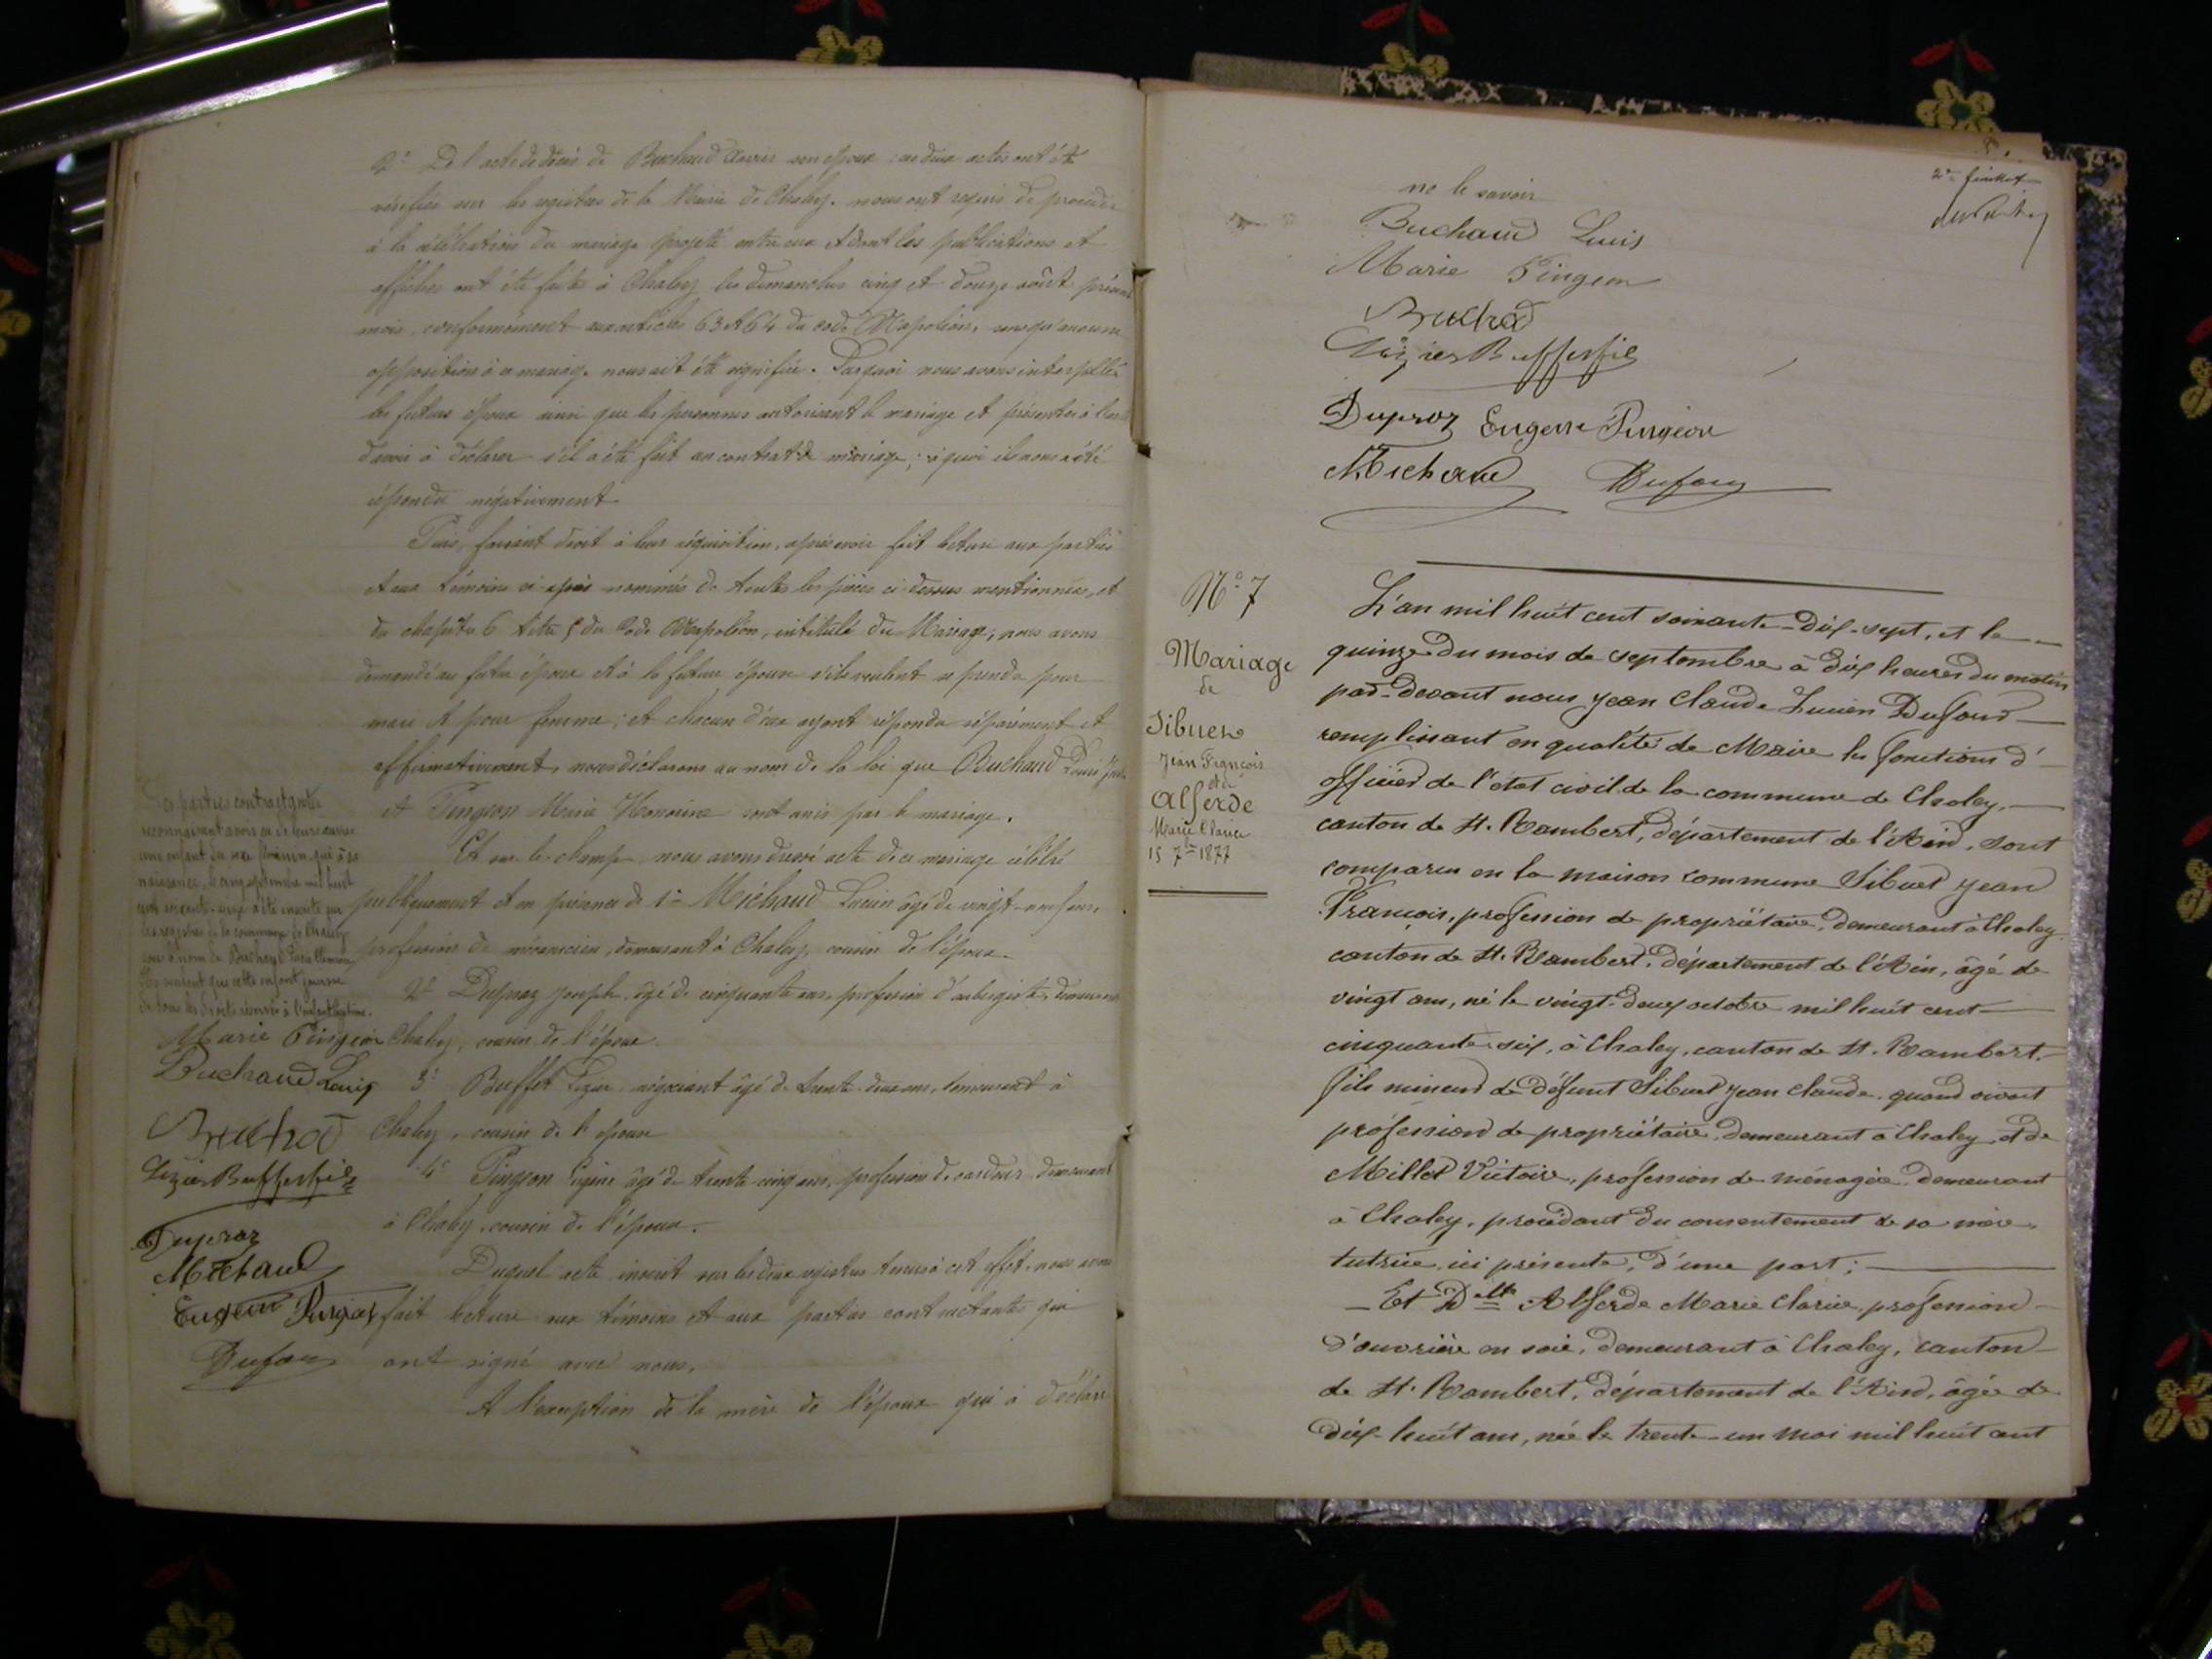 2° De l'acte de décès de Buchaud son époux : ces deux actes ont été
vérifiés sur les registres de la Mairie de Chaley. nous ont requis de procéder
à la célébration du mariage projeté entre eux et dont les publications et
affiches ont été faites à Chaley les dimanches cinq et douze août présent
mois conformément aux articles 63 et 64 du code Napoléon, sans qu'aucune
opposition à ce mariage nous ait été signifiée. Pourquoi nous avons interpellé
les futurs époux ainsi que les personnes autorisant le mariage et présentes à
d'avoir à déclarer s'il a été fait un contrat de mariage ; à quoi il nous a été
répondu négativement.
Puis, faisant droit à leur réquisition, après avoir fait lecture aux parties
et aux témoins ci-après nommés de toutes les pièces ci-dessus mentionnées, et
du chapitre 6 titre 5 du Code Napoléon, intitulé du Mariage, nous avons
demandé au futur époux et à la future épouse s'ils veulent se prendre pour
mari et pour femme ; et chacun d'eux ayant répondu séparément et
affirmativement, nous déclarons au nom de la loi que Buchaud Louis
et Pingeon Marie Honorine sont unis par le mariage.
Et sur le champ nous avons dressé acte de ce mariage célébré
publiquement et en présence de 1° Michaud Lucien âgé de vingt-neuf ans,
profession de mécanicien, demeurant à Chaley, cousin de l'époux.
2° Dupraz Joseph, âgé de cinquante ans, profession d'aubergiste, demeurant
Chaley, cousin de l'époux.
3° Buffet négociant âgé de trente-deux ans, demeurant à
Chaley, cousin de l'époux
4° Pingeon Eugène âgé de trente cinq ans, profession de cardeur demeurant
à Chaley, cousin de l'épouse.
Duquel acte inscrit sur les deux registres tenus à cet effet, nous avons
fait lecture aux témoins et aux parties contractantes qui
ont signé avec nous.
A l'exception de la mère de l'époux qui a déclaré
Les parties contractantes
reconnaissent avoir eu de leurs œuvres
une enfant du sexe féminin, qui à sa
naissance, le cinq septembre mil huit
cent soixante-seize a été inscrite sur
les registres de la commune de Chaley
sous le nom de Buchaud
Ils veulent que cette enfant jouisse
de tous les droits réservés à l'enfant légitime.
Marie Pingeon
Buchaud Louis
Buchod
Buffet fils
Dupraz
Michaud
Eugène Pingeon
Dufour
2e feuillet
ne le savoir
Buchaud Louis
Marie Pingeon
Buchod
Buffet fils
Dupraz Eugène Pingeon
Michaud Dufour
N° 7
Mariage
de
Sibuet
Jean François
et de
Alferde
Marie Clarice
15 7bre 1877
L'an mil huit cent soixante-dix-sept, et le
quinze du mois de septembre à dix heures du matin
par-devant nous Jean Claude Lucien Dufour
remplissant en qualité de Maire les fonctions d'
officier de l'état civil de la commune de Chaley,
canton de St. Rambert, département de l'Ain, sont
comparus en la maison commune Sibuet Jean
François, profession de propriétaire, demeurant à Chaley
canton de St. Rambert, département de l'Ain, âgé de
vingt ans, né le vingt-deux octobre mil huit cent
cinquante six, à Chaley, canton de St. Rambert,
fils mineur de défunt Sibuet Jean Claude, quand vivait
profession de propriétaire, demeurant à Chaley et de
Millet Victoire, profession de ménagère demeurant
à Chaley, procédant du consentement de sa mère,
tutrice ici présente, d'une part ;
Et Dlle Alferde Marie Clarice, profession
d'ouvrière en soie, demeurant à Chaley, canton
de St. Rambert, département de l'Ain, âgée de
dix-huit ans, née le trente-un mai mil huit cent